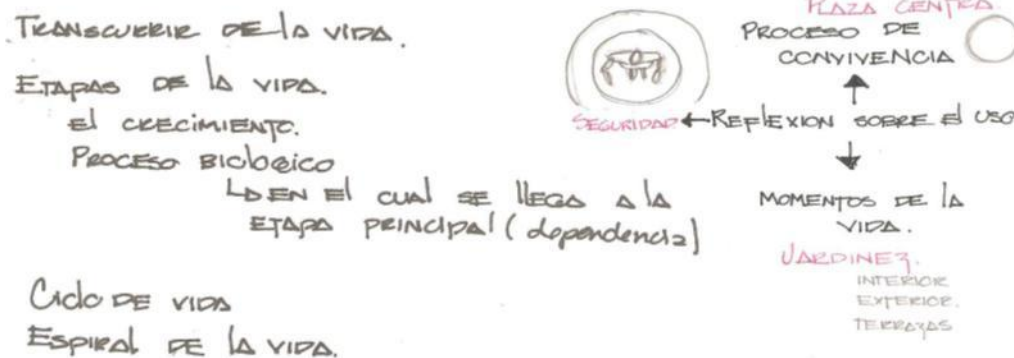 TRANSCURRIR DE LA VIDA.
ETAPAS DE LA VIDA.
El CRECIMIENTO.
PROCESO BIOlOGICO
EN El CUAL SE llEGA A lA
ETAPA PRINCIPAl (dependencia)
CIClO DE VIDA
ESPIRAl DE lA VIDA.
PLAZA CENTRA
PROCESO DE
CONVIVENCIA
SEGURIDAD ← REFlEXION SOBRE El USO
MOMENTOS DE lA
VIDA.
JARDINEZ.
INTERIOR
EXTERIOR.
TERRAZAS